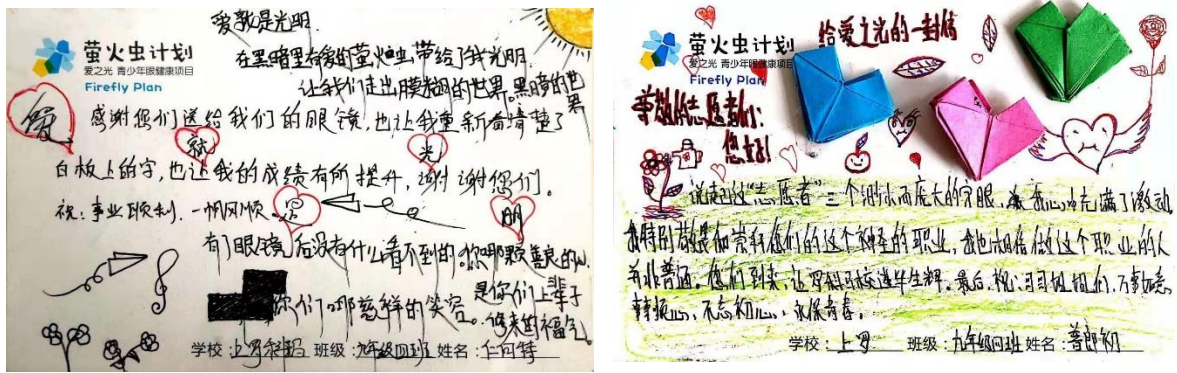 爱就是光明
萤火虫计划
爱之光 青少年眼健康项目
Firefly Plan
在黑暗里有爱的萤火虫带给了我光明.
让我们走出朦胧的世界。黑暗的世界
感谢您们送给我们的眼镜,也让我重新看清楚了
白板上的字,也让我的成绩有所提升,谢谢您们。
祝:事业顺利.一帆风顺。
爱
就
是
光
明
有了眼镜后没有什么看不到的。你那颗善良的心
你们那慈祥的笑容。是你们上辈子
修来的福气。
学校:上罗 班级:九年级四班 姓名:
萤火虫计划
爱之光 青少年眼健康项目
Firefly Plan
给爱之光的一封信
尊敬的志愿者们:
您好
说起这“志愿者”三个渺小而庞大的字眼,我心中充满了激动,
我特别敬畏和崇拜您们的这个神圣的职业,我也相信做这个职业的人
并非普通。您们到来,让罗科学校逢毕生辉。最后,祝 们,万事如意
不忘初心、永保青春。
学校:上罗 班级:九年级四班 姓名:普郎初